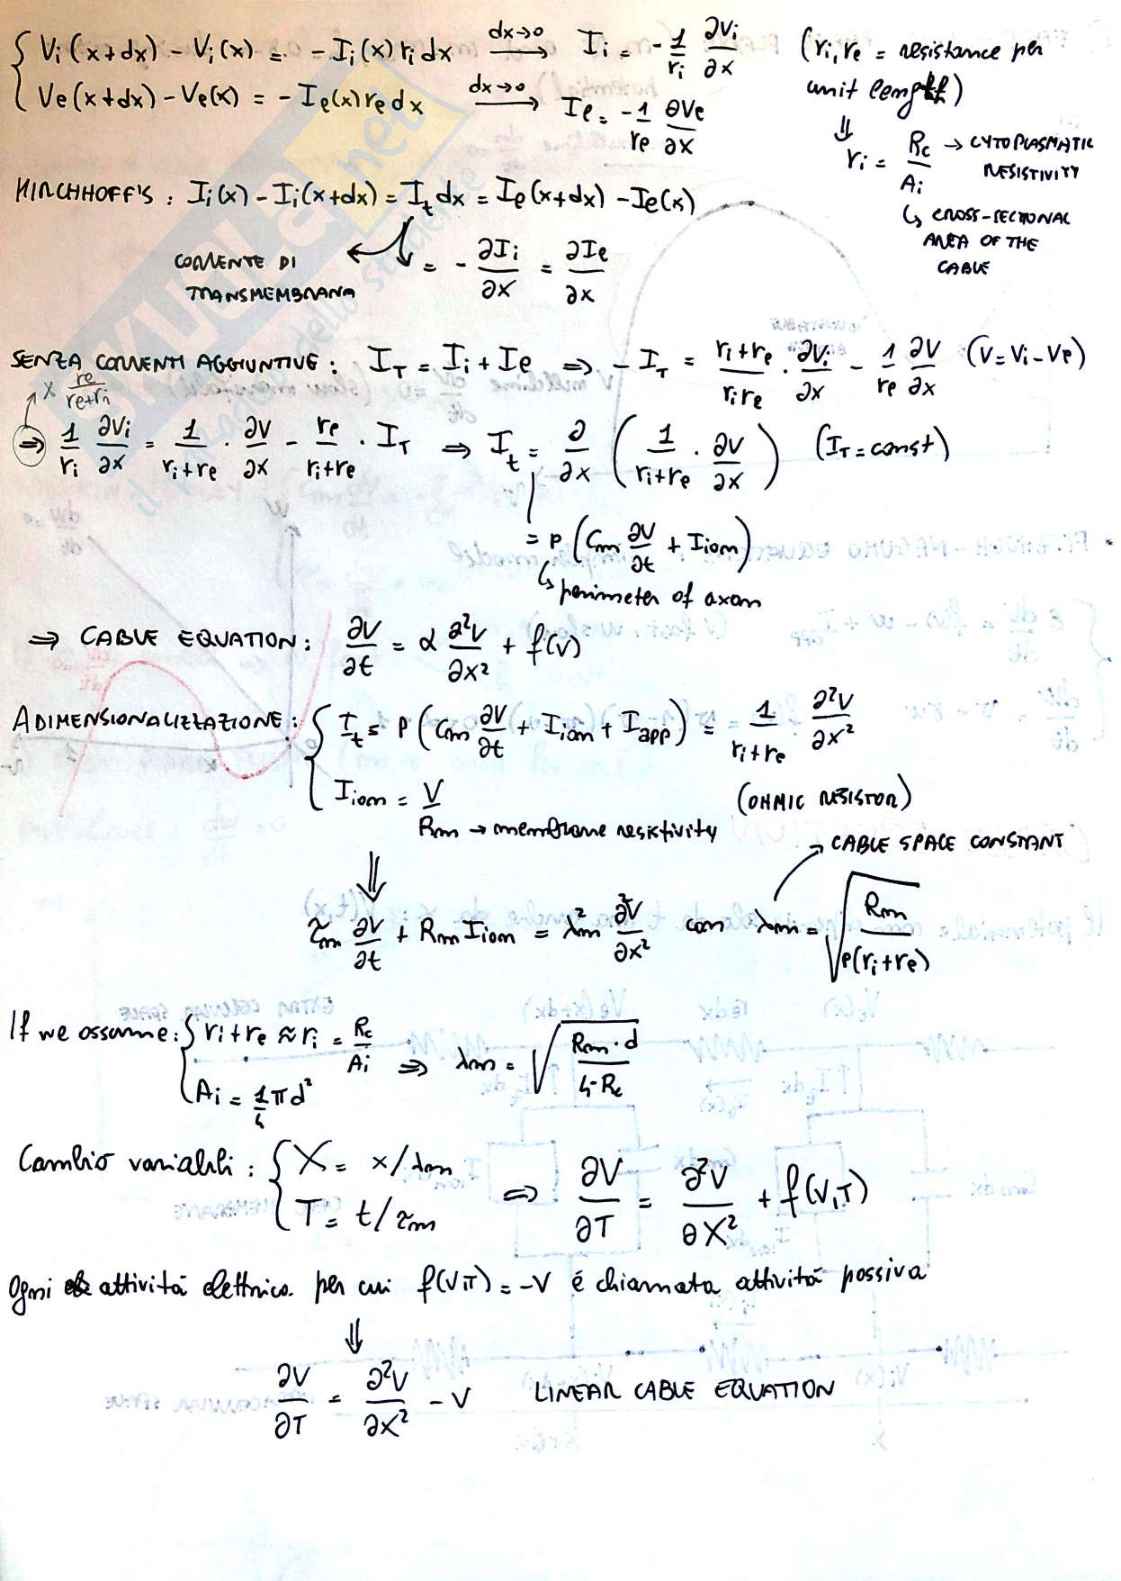 { Vi(x+dx) - Vi(x) = - Ii(x) ri dx  dx→0 ⟶  Ii = - 1/ri ∂Vi/∂x  (ri, re = resistance per
unit length)
Ve(x+dx) - Ve(x) = - Ie(x) re dx  dx→0 ⟶  Ie = - 1/re ∂Ve/∂x
⇓ ri = Rc/Ai → CYTOPLASMATIC
RESISTIVITY
↳ CROSS-SECTIONAL
AREA OF THE
CABLE
KIRCHHOFF'S : Ii(x) - Ii(x+dx) = It dx = Ie(x+dx) - Ie(x)
CORRENTE DI
TRANSMEMBRANA
= - ∂Ii/∂x = ∂Ie/∂x
SENZA CORRENTI AGGIUNTIVE : IT = Ii + Ie ⇒ - IT = (ri+re)/(ri re) · ∂Vi/∂x - 1/re ∂V/∂x (V = Vi - Ve)
x re/(re+ri)
⇒ 1/ri ∂Vi/∂x = 1/(ri+re) · ∂V/∂x - re/(ri+re) · IT ⇒ It = ∂/∂x ( 1/(ri+re) · ∂V/∂x ) (IT = const)
= p ( Cm ∂V/∂t + Iion )
↳ perimeter of axon
⇒ CABLE EQUATION : ∂V/∂t = α ∂²V/∂x² + f(V)
ADIMENSIONALIZZAZIONE : { It = p ( Cm ∂V/∂t + Iion + Iapp ) = 1/(ri+re) · ∂²V/∂x²
Iion = V/Rm → membrane resistivity (OHMIC RESISTOR)
⇓
→ CABLE SPACE CONSTANT
τm ∂V/∂t + Rm Iion = λm² ∂²V/∂x² con λm = √( Rm / p(ri+re) )
If we assume : { ri+re ≈ ri = Rc/Ai ⇒ λm = √( Rm·d / 4·Rc )
Ai = 1/4 πd²
Cambio variabili : { X = x/λm
T = t/τm
⇒ ∂V/∂T = ∂²V/∂X² + f(V,T)
Ogni attività elettrica per cui f(V,T) = -V é chiamata attività passiva
⇓
∂V/∂T = ∂²V/∂X² - V LINEAR CABLE EQUATION